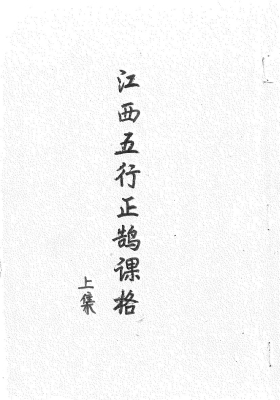 江西五行正鹄课格
上集